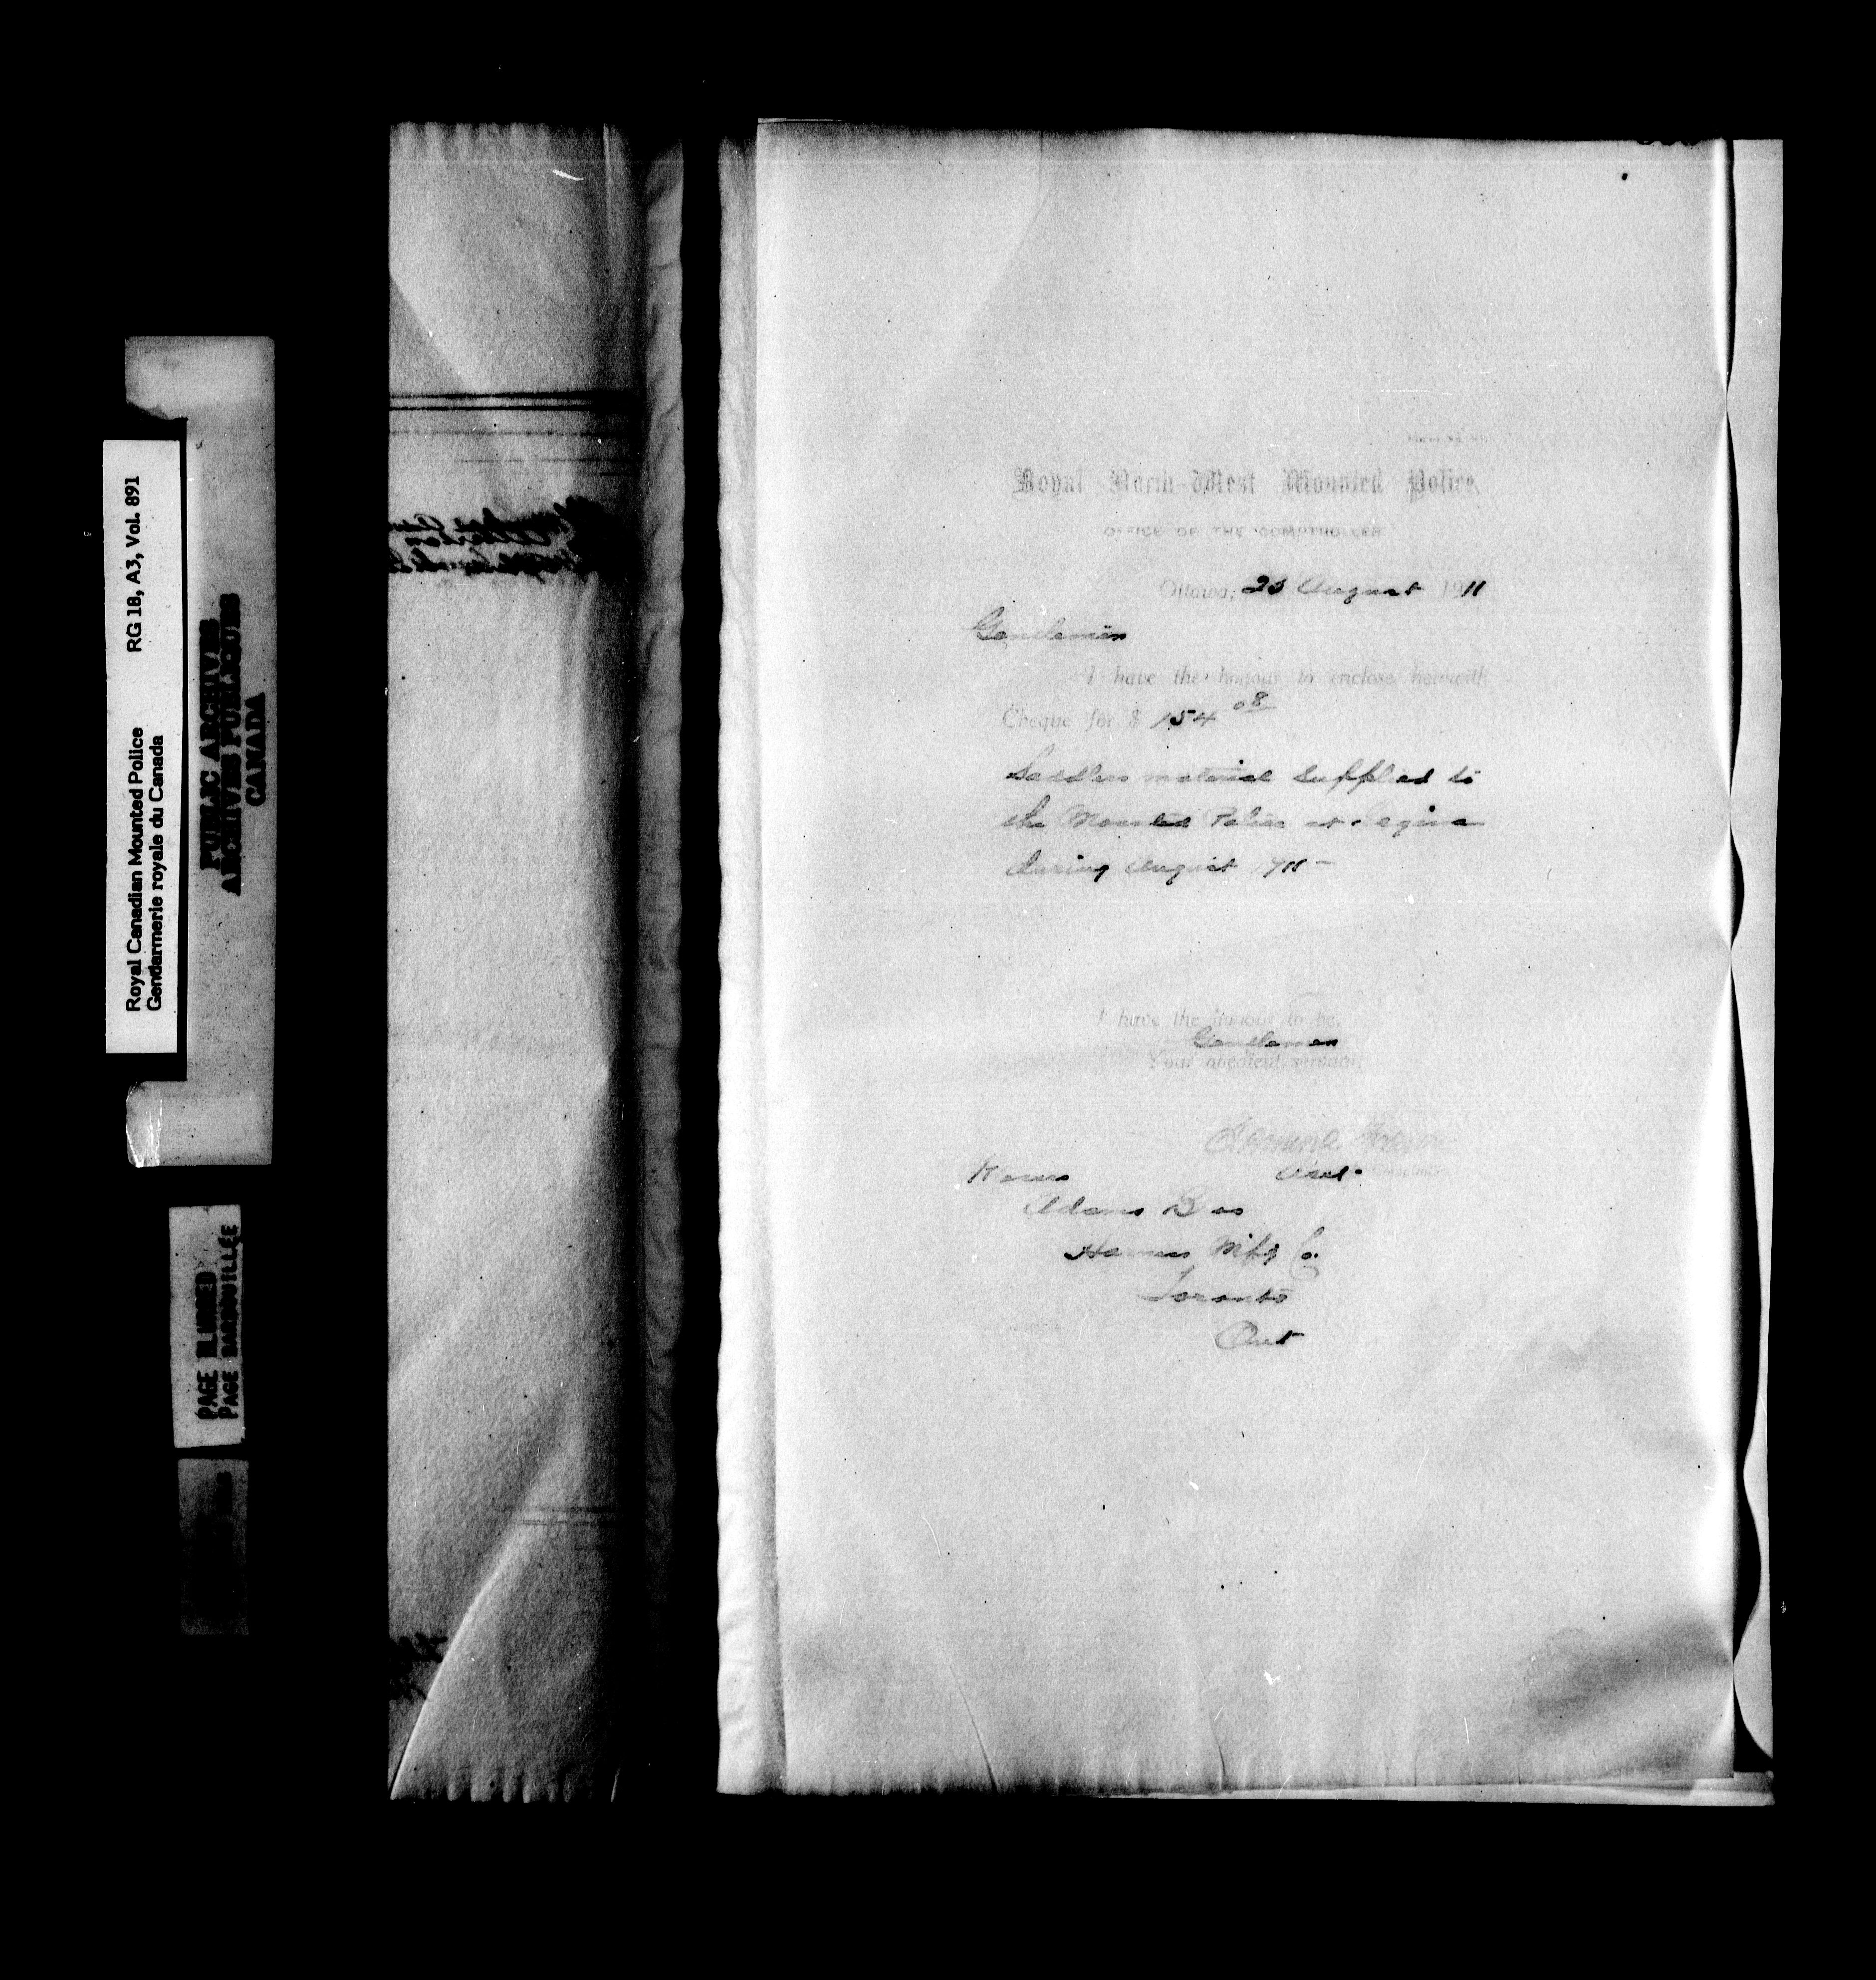 Royal Canadian Mounted Police RG 18, A3, Vol. 891
Gendarmerie royale du Canada
PUBLIC ARCHIVES
ARCHIVES PUBLIQUES
CANADA
PAGE BLURRED
PAGE BARBOUILLÉE
Royal North-West Mounted Police,
OFFICE OF THE COMPTROLLER
Ottawa, August 1911
Gentlemen
I have the honour to enclose herewith
Cheque for $ 154 08
Saddlers material supplied to
the Mounted Police at Regina
during August 1911 -
I have the honour to be,
Gentlemen
Your obedient servant,
Messrs
Adams Bros
Harness Mfg Co.
Toronto
Ont